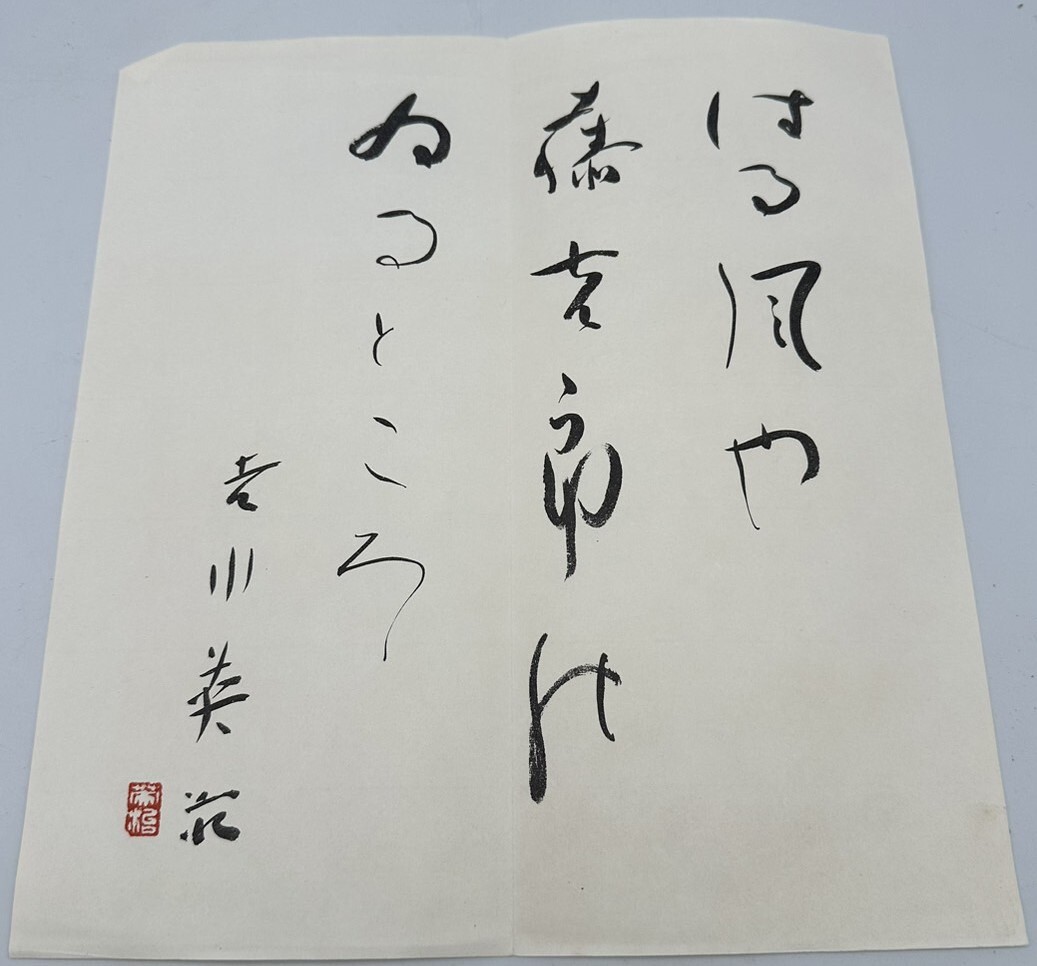 はる風や
藤吉郎の
ゐるところ
吉川英治